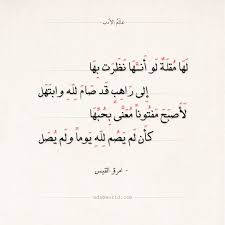 عالم الأدب
لَهَا مُقلَةٌ لَو أَنَّهَا نَظَرَت بِهَا
إِلى رَاهِبٍ قَد صَامَ لِلهِ وابتَهَل
لَأَصبَحَ مَفتُوناً مُعَنَّى بِحُبِّهَا
كَأَن لَم يَصُم لِلهِ يَوماً ولَم يُصَل
- امرؤ القيس
adabworld.com